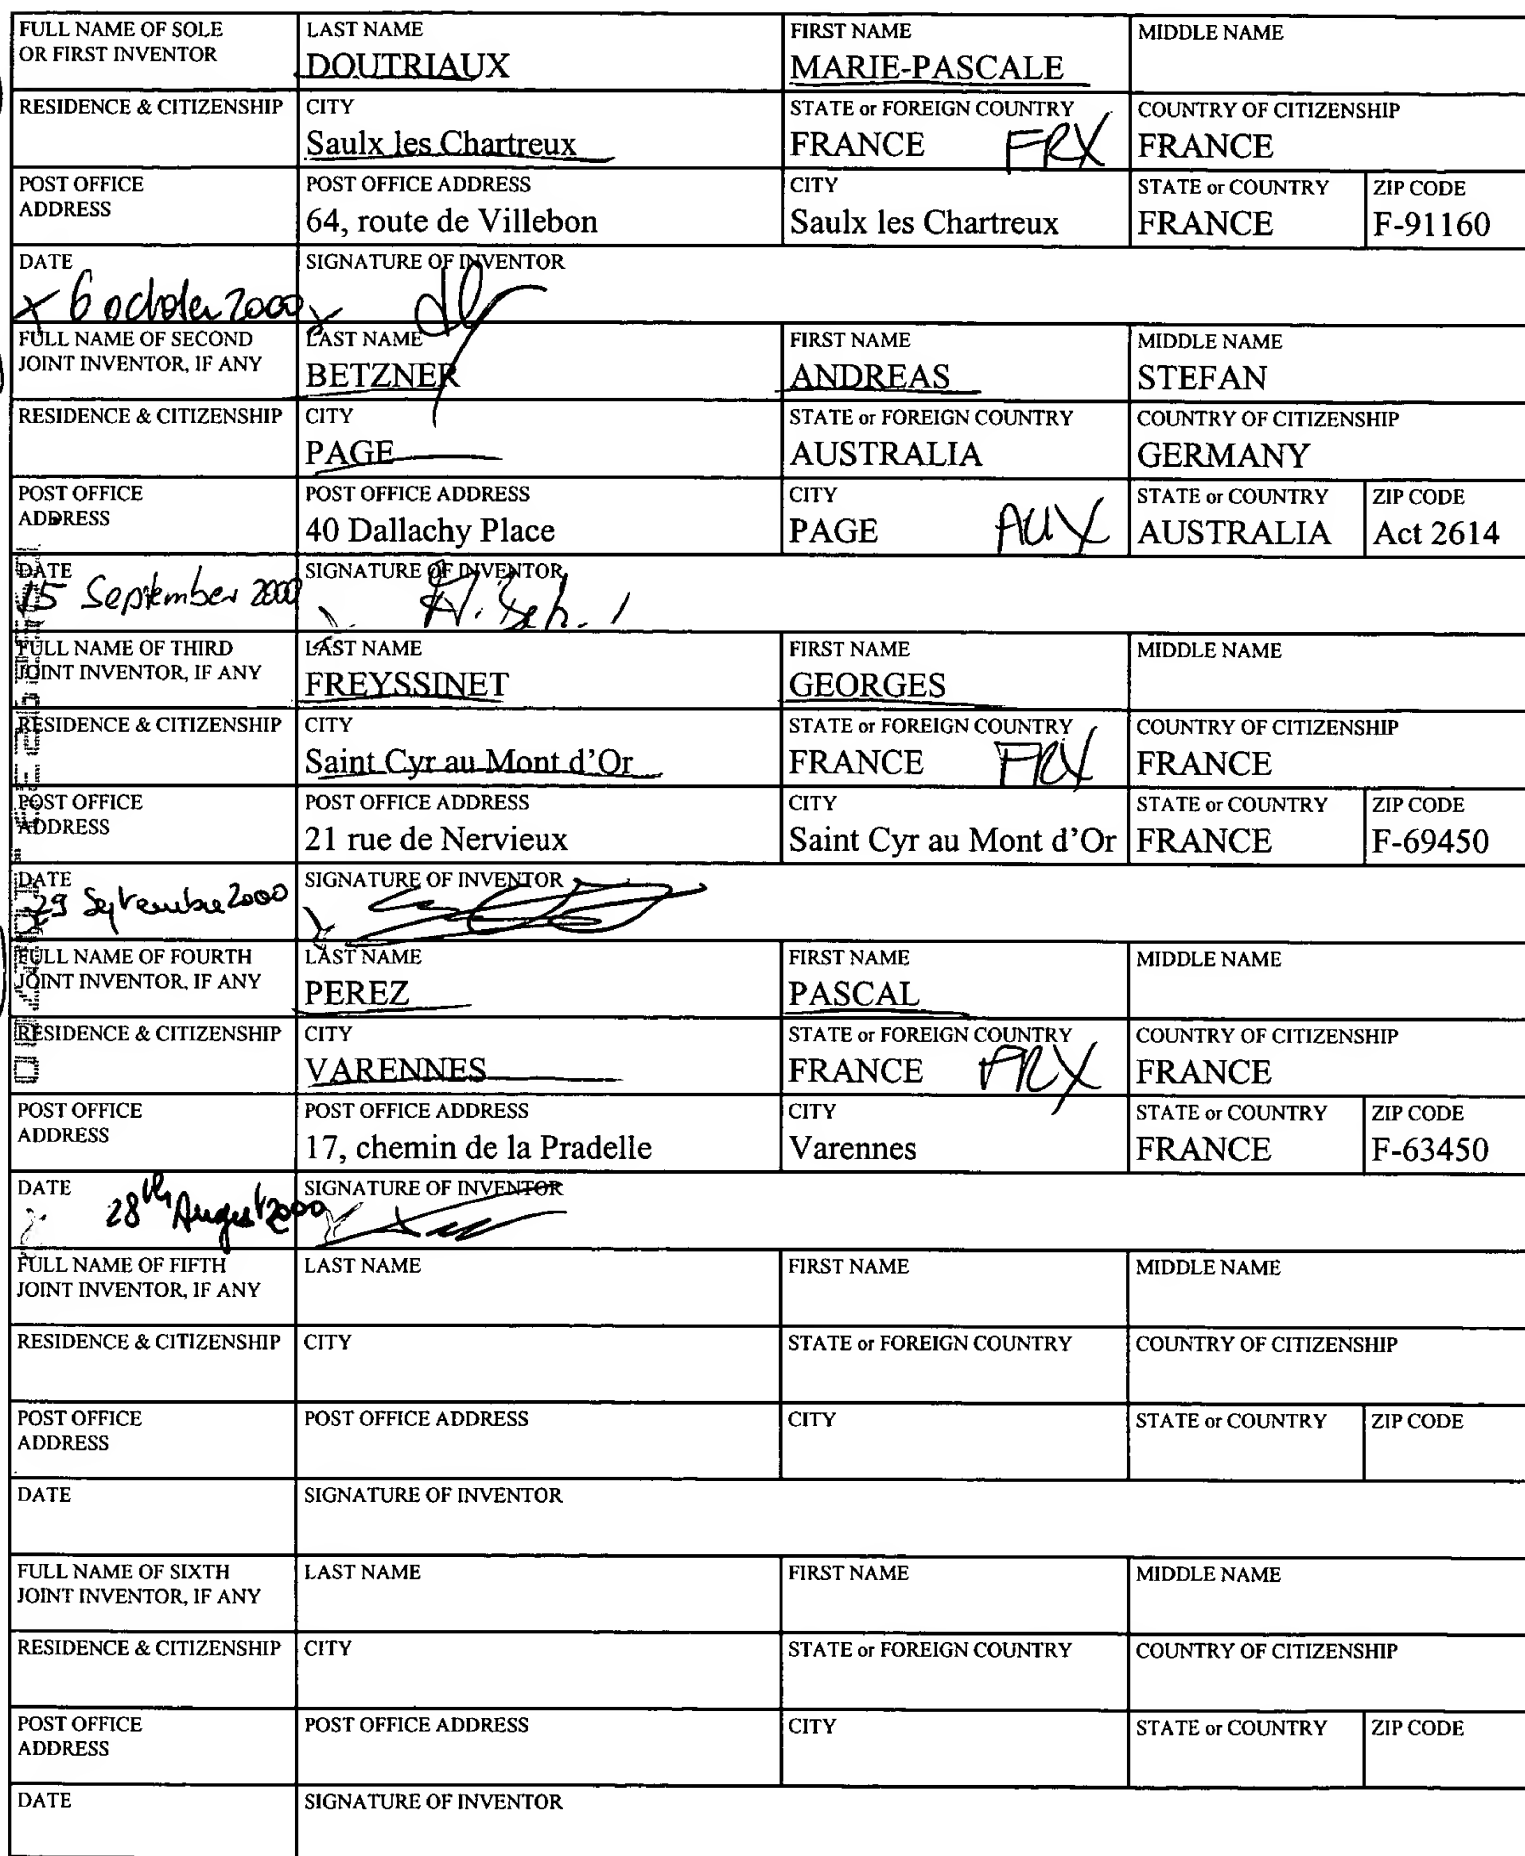 FULL NAME OF SOLE OR FIRST INVENTOR
LAST NAME
DOUTRIAUX
FIRST NAME
MARIE-PASCALE
MIDDLE NAME
RESIDENCE & CITIZENSHIP
CITY
Saulx les Chartreux
STATE or FOREIGN COUNTRY
FRANCE FRX
COUNTRY OF CITIZENSHIP
FRANCE
POST OFFICE ADDRESS
POST OFFICE ADDRESS
64, route de Villebon
CITY
Saulx les Chartreux
STATE or COUNTRY
FRANCE
ZIP CODE
F-91160
DATE
6 october 2000
SIGNATURE OF INVENTOR
FULL NAME OF SECOND JOINT INVENTOR, IF ANY
LAST NAME
BETZNER
FIRST NAME
ANDREAS
MIDDLE NAME
STEFAN
RESIDENCE & CITIZENSHIP
CITY
PAGE
STATE or FOREIGN COUNTRY
AUSTRALIA
COUNTRY OF CITIZENSHIP
GERMANY
POST OFFICE ADDRESS
POST OFFICE ADDRESS
40 Dallachy Place
CITY
PAGE AUX
STATE or COUNTRY
AUSTRALIA
ZIP CODE
Act 2614
DATE
15 September 2000
SIGNATURE OF INVENTOR
FULL NAME OF THIRD JOINT INVENTOR, IF ANY
LAST NAME
FREYSSINET
FIRST NAME
GEORGES
MIDDLE NAME
RESIDENCE & CITIZENSHIP
CITY
Saint Cyr au Mont d'Or
STATE or FOREIGN COUNTRY
FRANCE FRX
COUNTRY OF CITIZENSHIP
FRANCE
POST OFFICE ADDRESS
POST OFFICE ADDRESS
21 rue de Nervieux
CITY
Saint Cyr au Mont d'Or
STATE or COUNTRY
FRANCE
ZIP CODE
F-69450
DATE
29 Septembre 2000
SIGNATURE OF INVENTOR
FULL NAME OF FOURTH JOINT INVENTOR, IF ANY
LAST NAME
PEREZ
FIRST NAME
PASCAL
MIDDLE NAME
RESIDENCE & CITIZENSHIP
CITY
VARENNES
STATE or FOREIGN COUNTRY
FRANCE FRX
COUNTRY OF CITIZENSHIP
FRANCE
POST OFFICE ADDRESS
POST OFFICE ADDRESS
17, chemin de la Pradelle
CITY
Varennes
STATE or COUNTRY
FRANCE
ZIP CODE
F-63450
DATE
28th August 2000
SIGNATURE OF INVENTOR
FULL NAME OF FIFTH JOINT INVENTOR, IF ANY
LAST NAME
FIRST NAME
MIDDLE NAME
RESIDENCE & CITIZENSHIP
CITY
STATE or FOREIGN COUNTRY
COUNTRY OF CITIZENSHIP
POST OFFICE ADDRESS
POST OFFICE ADDRESS
CITY
STATE or COUNTRY
ZIP CODE
DATE
SIGNATURE OF INVENTOR
FULL NAME OF SIXTH JOINT INVENTOR, IF ANY
LAST NAME
FIRST NAME
MIDDLE NAME
RESIDENCE & CITIZENSHIP
CITY
STATE or FOREIGN COUNTRY
COUNTRY OF CITIZENSHIP
POST OFFICE ADDRESS
POST OFFICE ADDRESS
CITY
STATE or COUNTRY
ZIP CODE
DATE
SIGNATURE OF INVENTOR